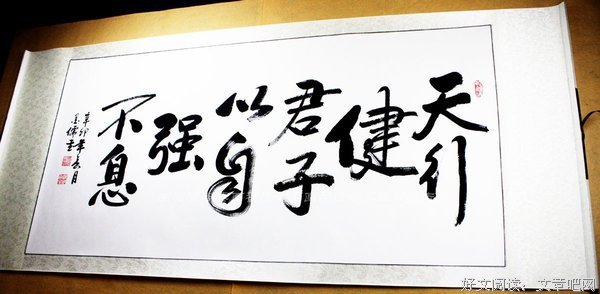 天行
健
君子
以自
强
不息
辛卯年
好文阅读：文章吧网